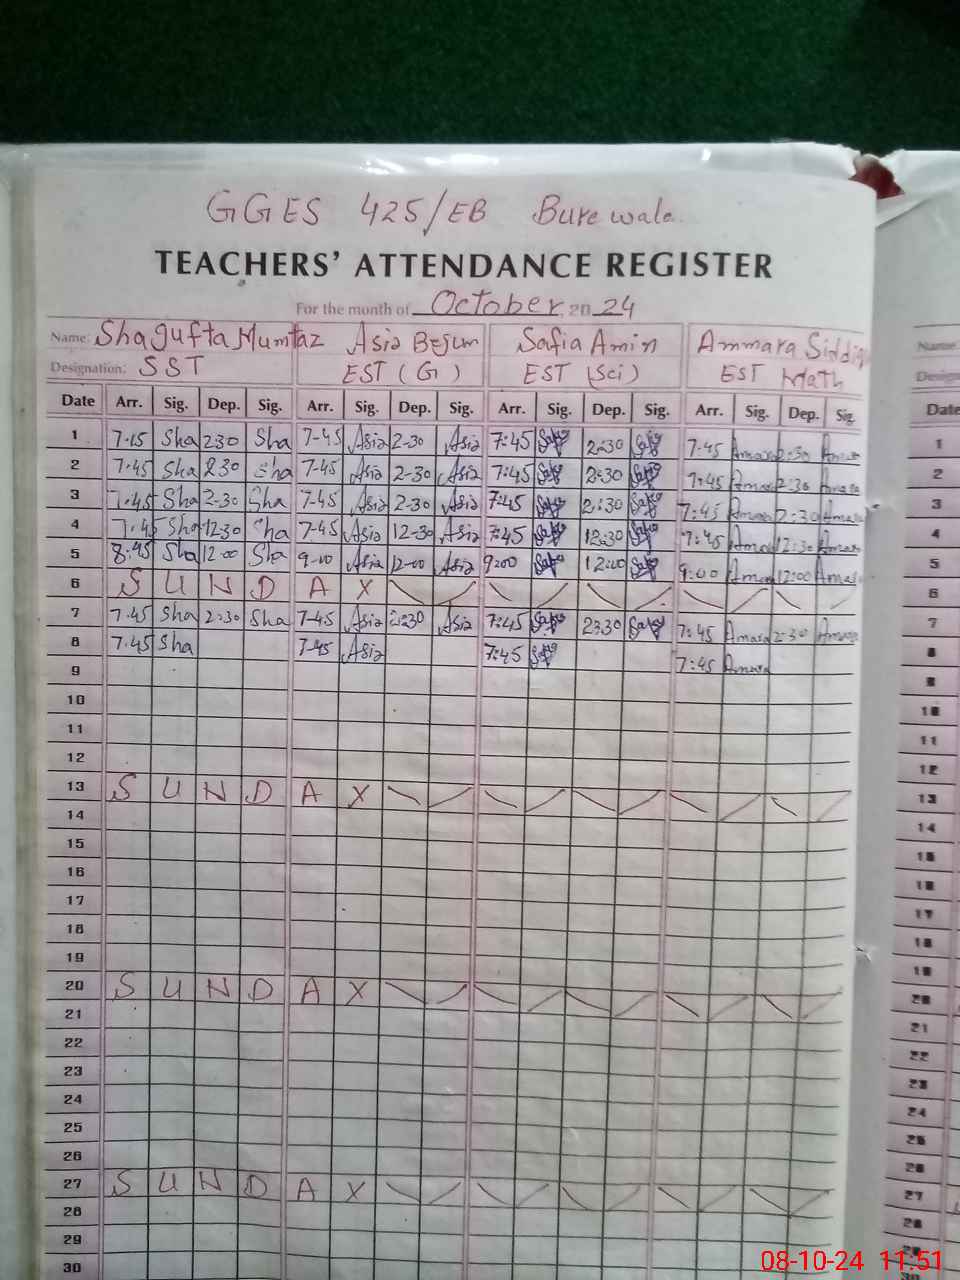 GGES 425/EB Burewala.
TEACHERS' ATTENDANCE REGISTER
For the month of October, 2024
Name: Shagufta Mumtaz Asia Begum Safia Amin Ammara Siddiq
Designation: SST EST (G) EST (Sci) EST Math
Date Arr. Sig. Dep. Sig. Arr. Sig. Dep. Sig. Arr. Sig. Dep. Sig. Arr. Sig. Dep. Sig
1 7-15 Sha 230 Sha 7-45 Asia 2-30 Asia 7:45 2:30 7-45 Amara 2:30 Amara
2 7.45 Sha 230 Sha 7-45 Asia 2-30 Asia 7:45 2:30 7:45 Amara 2:30 Amara
3 7.45 Sha 2-30 Sha 7-45 Asia 2-30 Asia 7:45 2:30 7:45 Amara 2:30 Amara
4 7.45 Sha 12-30 Sha 7-45 Asia 12-30 Asia 7:45 12:30 7:45 Amara 12:30 Amara
5 8:45 Sha 12-00 Sha 9-00 Asia 12-00 Asia 9:00 12:00 9:00 Amara 12:00 Amara
6 S U N D A Y
7 7.45 Sha 2:30 Sha 7-45 Asia 2:30 Asia 7:45 2330 7:45 Amara 2:30 Amara
8 7.45 Sha 7-45 Asia 7:45 7:45 Amara
9
10
11
12
13 S U N D A Y
14
15
16
17
18
19
20 S U N D A Y
21
22
23
24
25
26
27 S U N D A Y
28
29
30
Name:
Design
Date
1
2
3
4
5
6
7
8
9
10
11
12
13
14
15
16
17
18
19
20
21
22
23
24
25
26
27
28
29
30
08-10-24 11:51